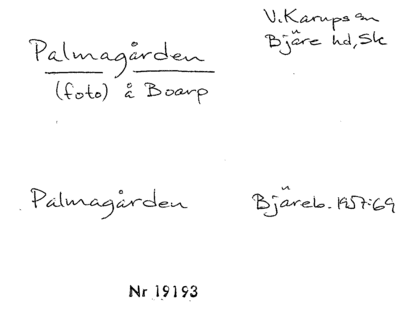 V. Karups sn
Bjäre hd, Sk
Palmagården
(foto) å Boarp
Palmagården
Bjäreb. 1957:69
Nr 19193